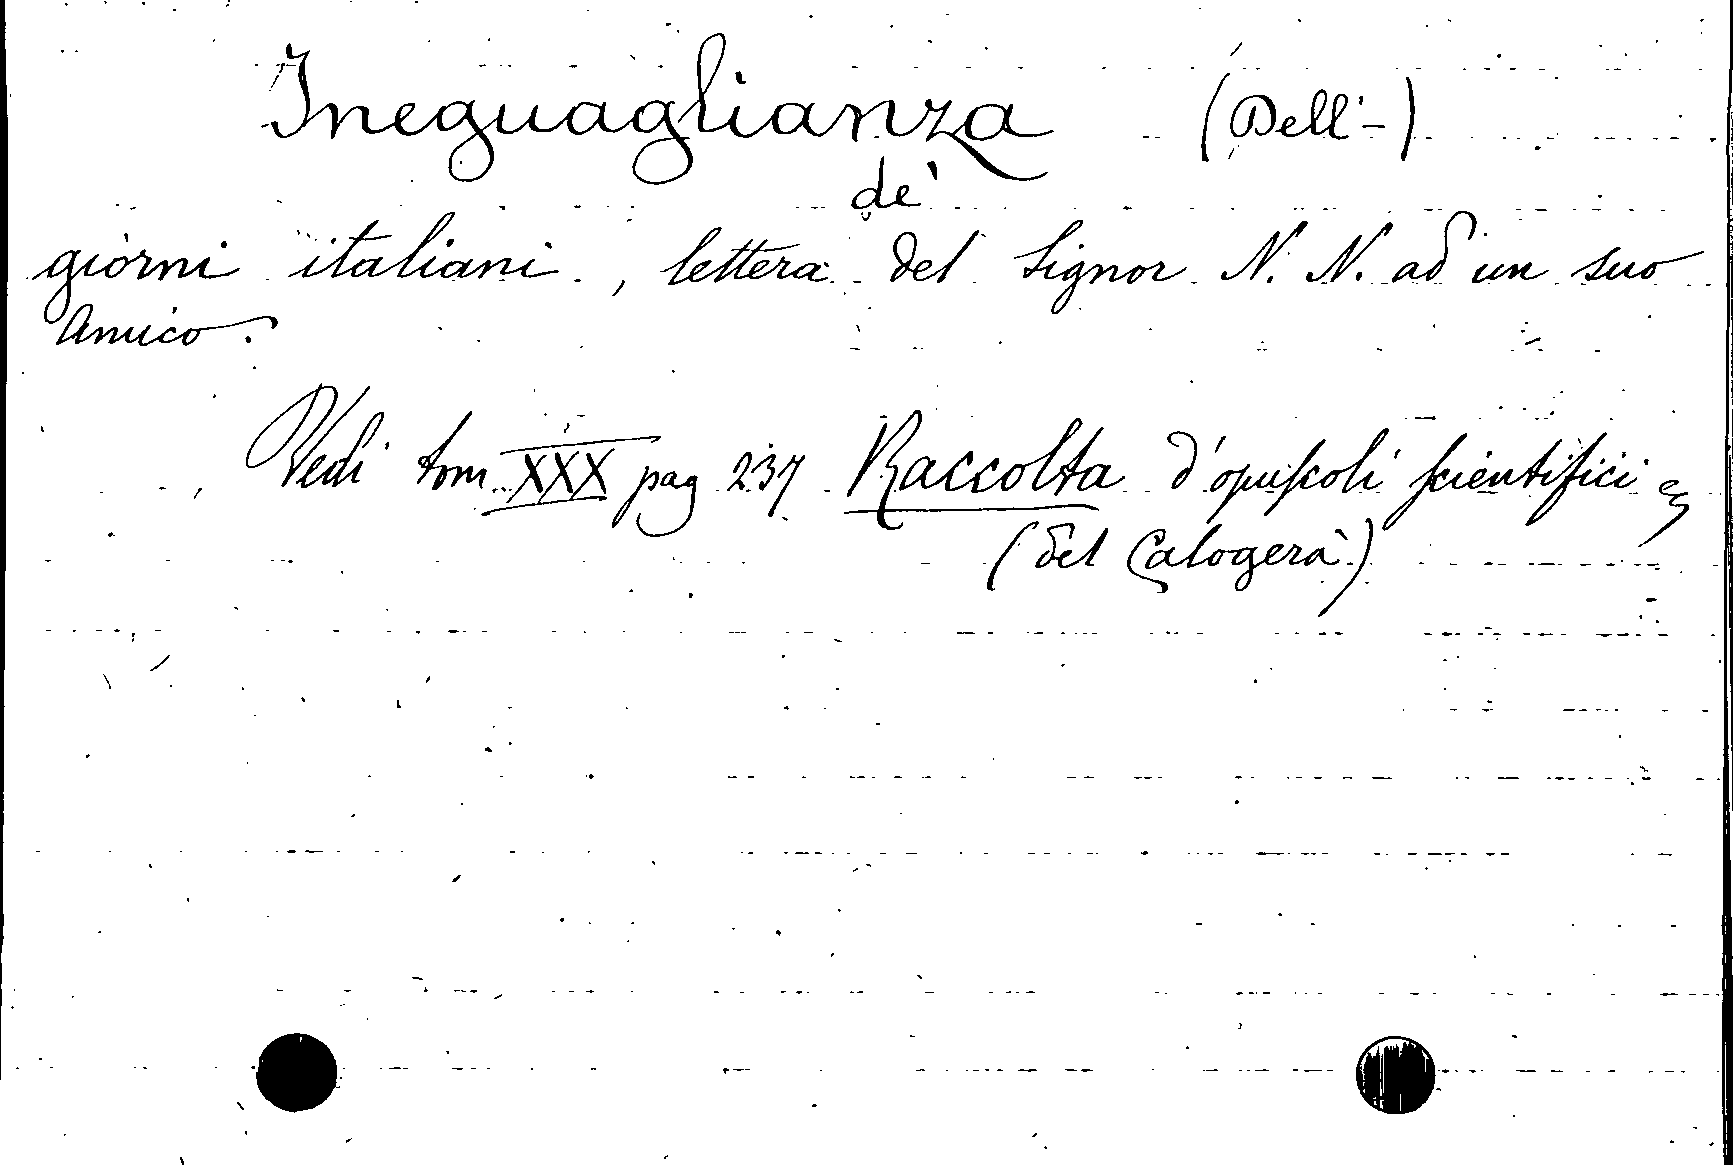 Ineguaglianza (Dell'-)
de'
giorni italiani, lettera del Signor N. N. ad un suo
Amico.
Vedi tom. XXX pag 237 Raccolta d'opuscoli scientifici &
(del Calogerà)